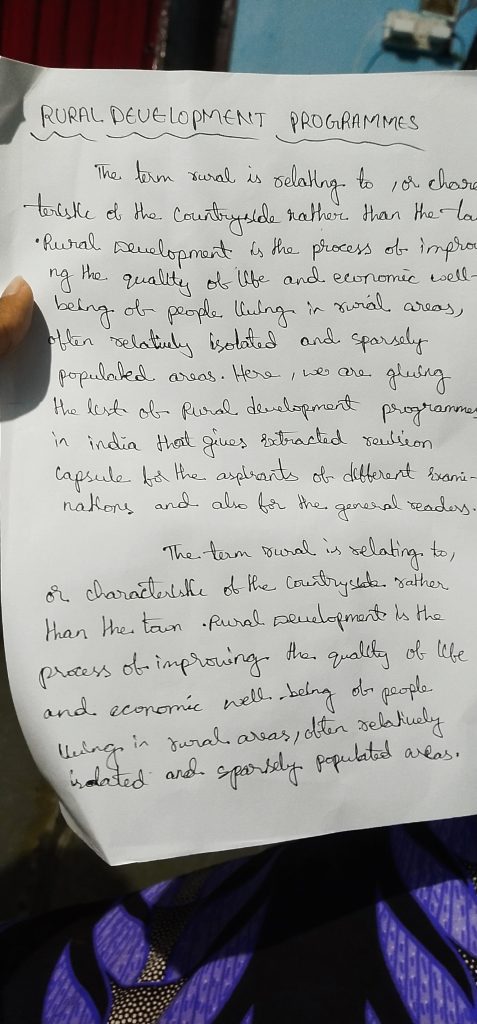 RURAL DEVELOPMENT PROGRAMMES
The term rural is relating to , or chara
teristic of the Countryside rather than the to
. Rural Development is the process of improvi
ng the quality of life and economic well-
being of people living in rural areas,
often relatively isolated and sparsely
populated areas. Here , we are giving
the list of Rural development programmes
in india that gives extracted revision
Capsule for the aspirants of different Exami-
nations and also for the general readers.
The term rural is relating to,
or characteristic of the Countryside rather
than the town . Rural Development is the
process of improving the quality of life
and economic well-being of people
living in rural areas, often relatively
isolated and sparsely populated areas.